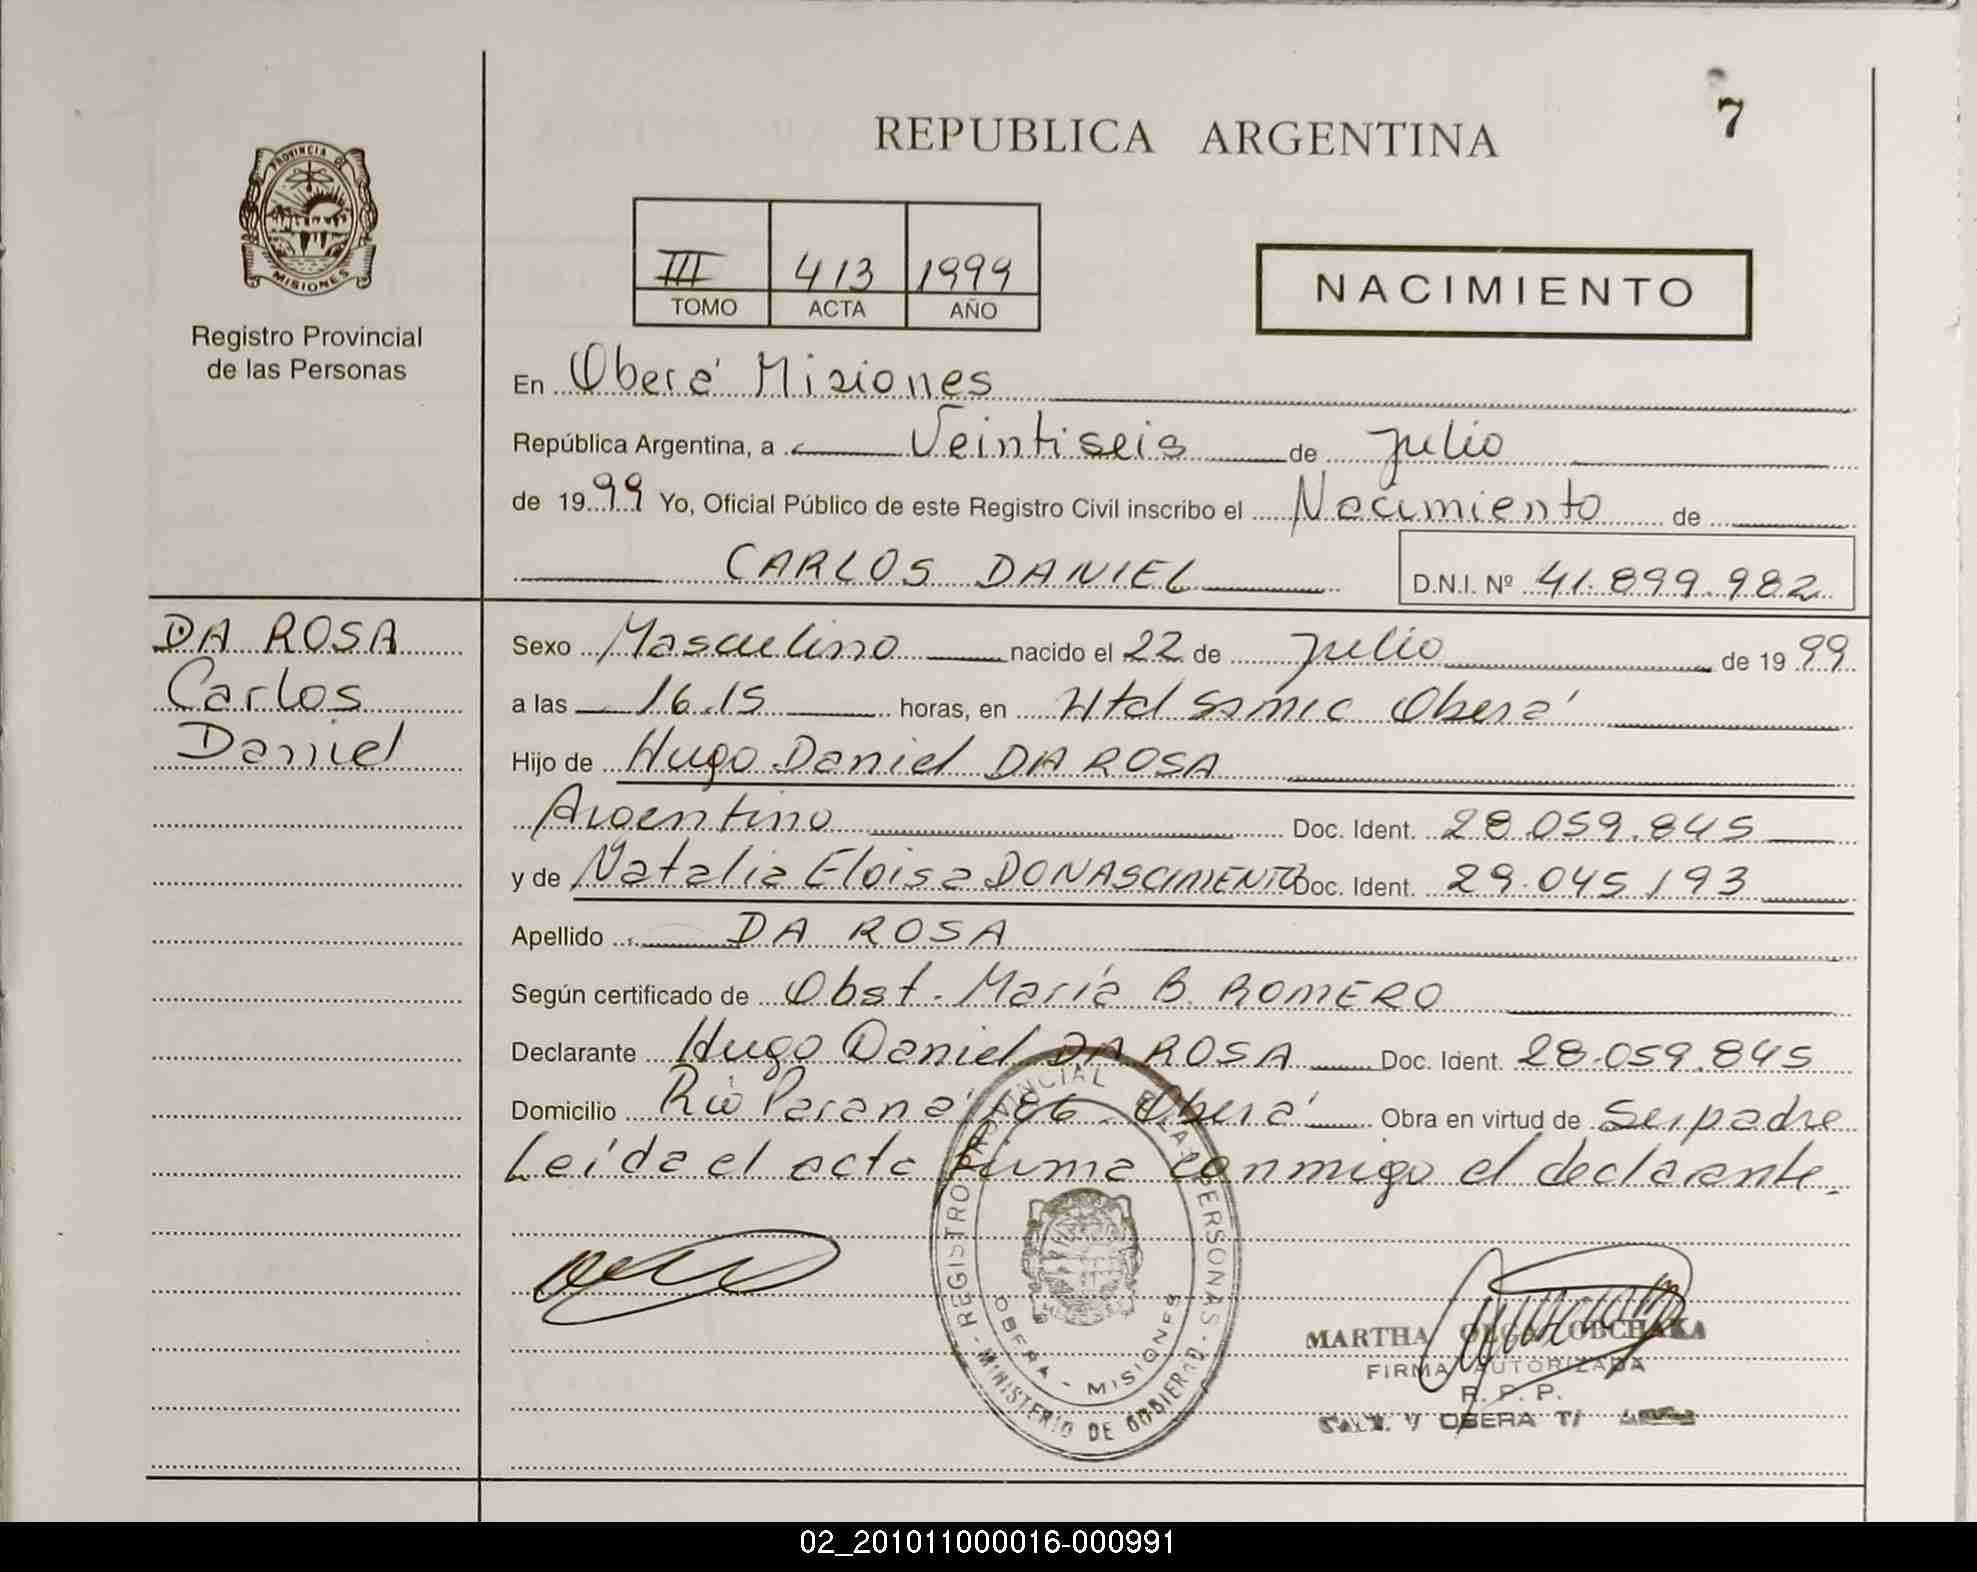 7
REPUBLICA ARGENTINA
PROVINCIA DE
MISIONES
Registro Provincial
de las Personas
III 413 1999
TOMO ACTA AÑO
NACIMIENTO
En Oberá Misiones
República Argentina, a Veintiseis de Julio
de 1999 Yo, Oficial Público de este Registro Civil inscribo el Nacimiento de
CARLOS DANIEL D.N.I. Nº 41.899.982
DA ROSA
Carlos
Daniel
Sexo Masculino nacido el 22 de Julio de 1999
a las 16.15 horas, en Htal Samic Oberá
Hijo de Hugo Daniel DA ROSA
Argentino Doc. Ident. 28.059.845
y de Natalia Eloisa DONASCIMIENTO Doc. Ident. 29.045.193
Apellido DA ROSA
Según certificado de Obst. María B. ROMERO
Declarante Hugo Daniel DA ROSA Doc. Ident. 28.059.845
Domicilio Río Paraná 186 Oberá Obra en virtud de Ser padre
Leída el acta firma conmigo el declarante.
REGISTRO PROVINCIAL DE LAS PERSONAS
OBERA - MISIONES
MINISTERIO DE GOBIERNO
MARTHA OLGA
FIRMA AUTORIZADA
R. P. P.
OBERA
02_201011000016-000991